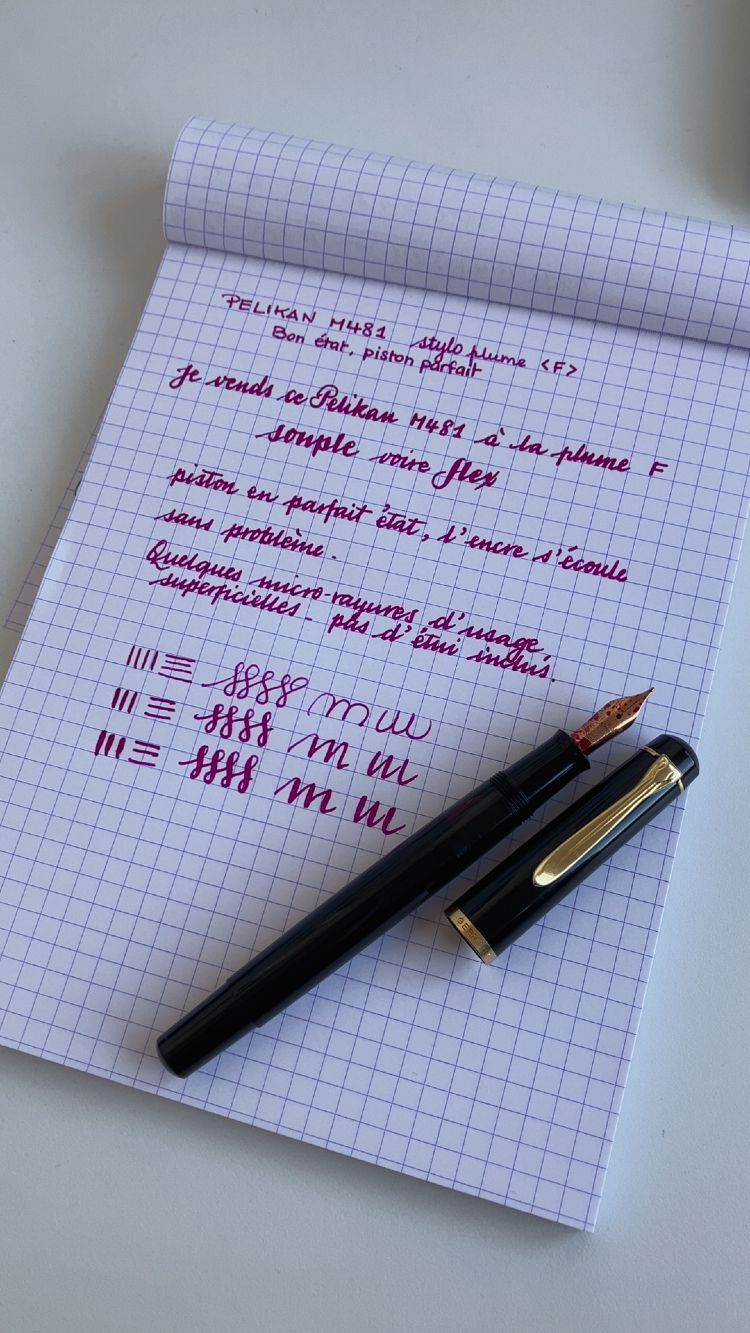 PELIKAN M481 stylo plume <F>
Bon état, piston parfait
Je vends ce Pelikan M481 à la plume F
souple voire flex
piston en parfait état, l'encre s'écoule
sans problème.
Quelques micro-rayures d'usage
superficielles - pas d'étui inclus.